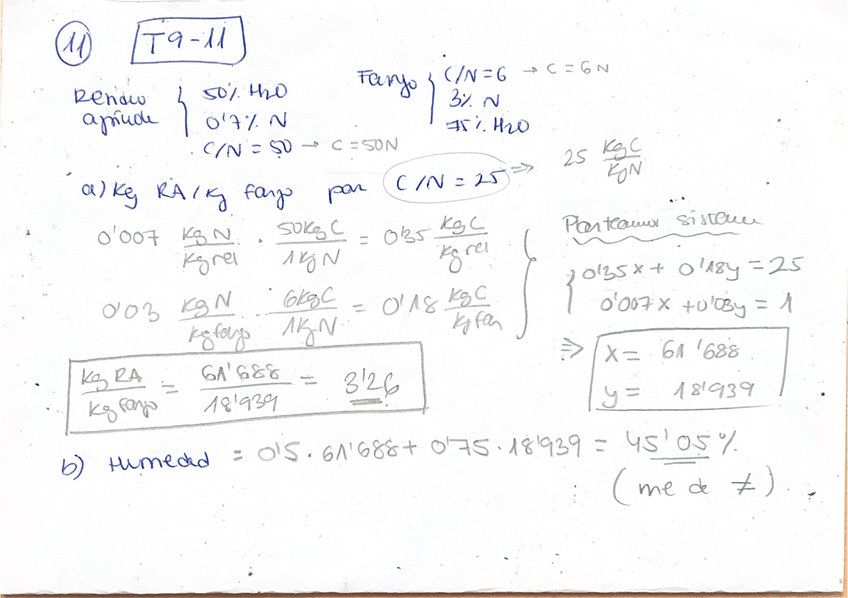 11 T9-11
Residuo agrícola { 50% H2O
0'7% N
C/N = 50 → C = 50N
Fango { C/N = 6 → C = 6N
3% N
75% H2O
a) Kg RA/Kg fango para C/N = 25 ⇒ 25 KgC/KgN
0'007 KgN/Kg res · 50KgC/1KgN = 0'35 KgC/Kg res
0'03 KgN/Kg fango · 6KgC/1KgN = 0'18 KgC/Kg fan
Planteamos sistema
0'35x + 0'18y = 25
0'007x + 0'03y = 1
⇒ x = 61'688
y = 18'939
Kg RA/Kg fango = 61'688/18'939 = 3'26
b) Humedad = 0'5 · 61'688 + 0'75 · 18'939 = 45'05%
(me da ≠).